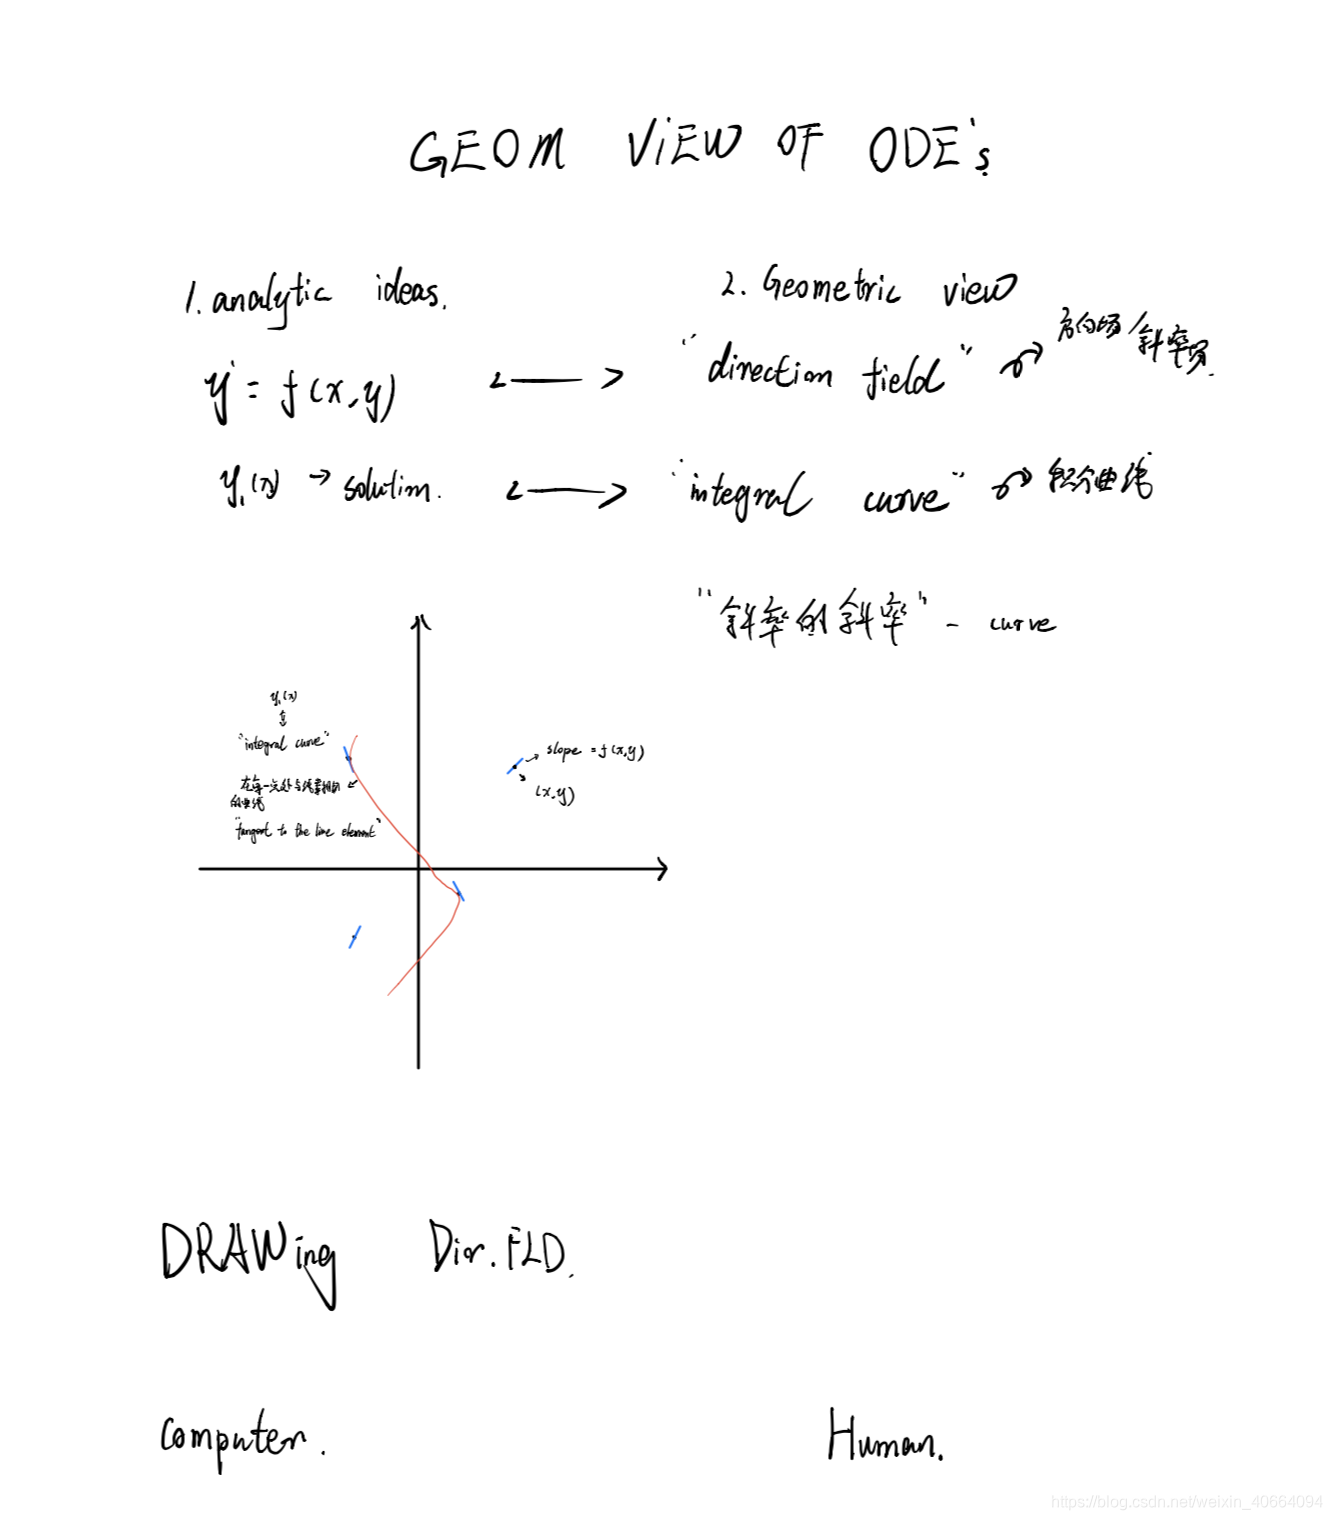 GEOM VIEW OF ODE's
1. analytic ideas.
2. Geometric view
y' = f(x,y) <—> "direction field" 方向场/斜率场.
y₁(x) → solution. <—> "integral curve" 积分曲线
"斜率的斜率" - curve
y₁(x)
"integral curve"
在每一点处与线素相切
的曲线
"tangent to the line element"
slope = f(x,y)
(x,y)
DRAWing Dir. FLD.
computer.
Human.
https://blog.csdn.net/weixin_40664094